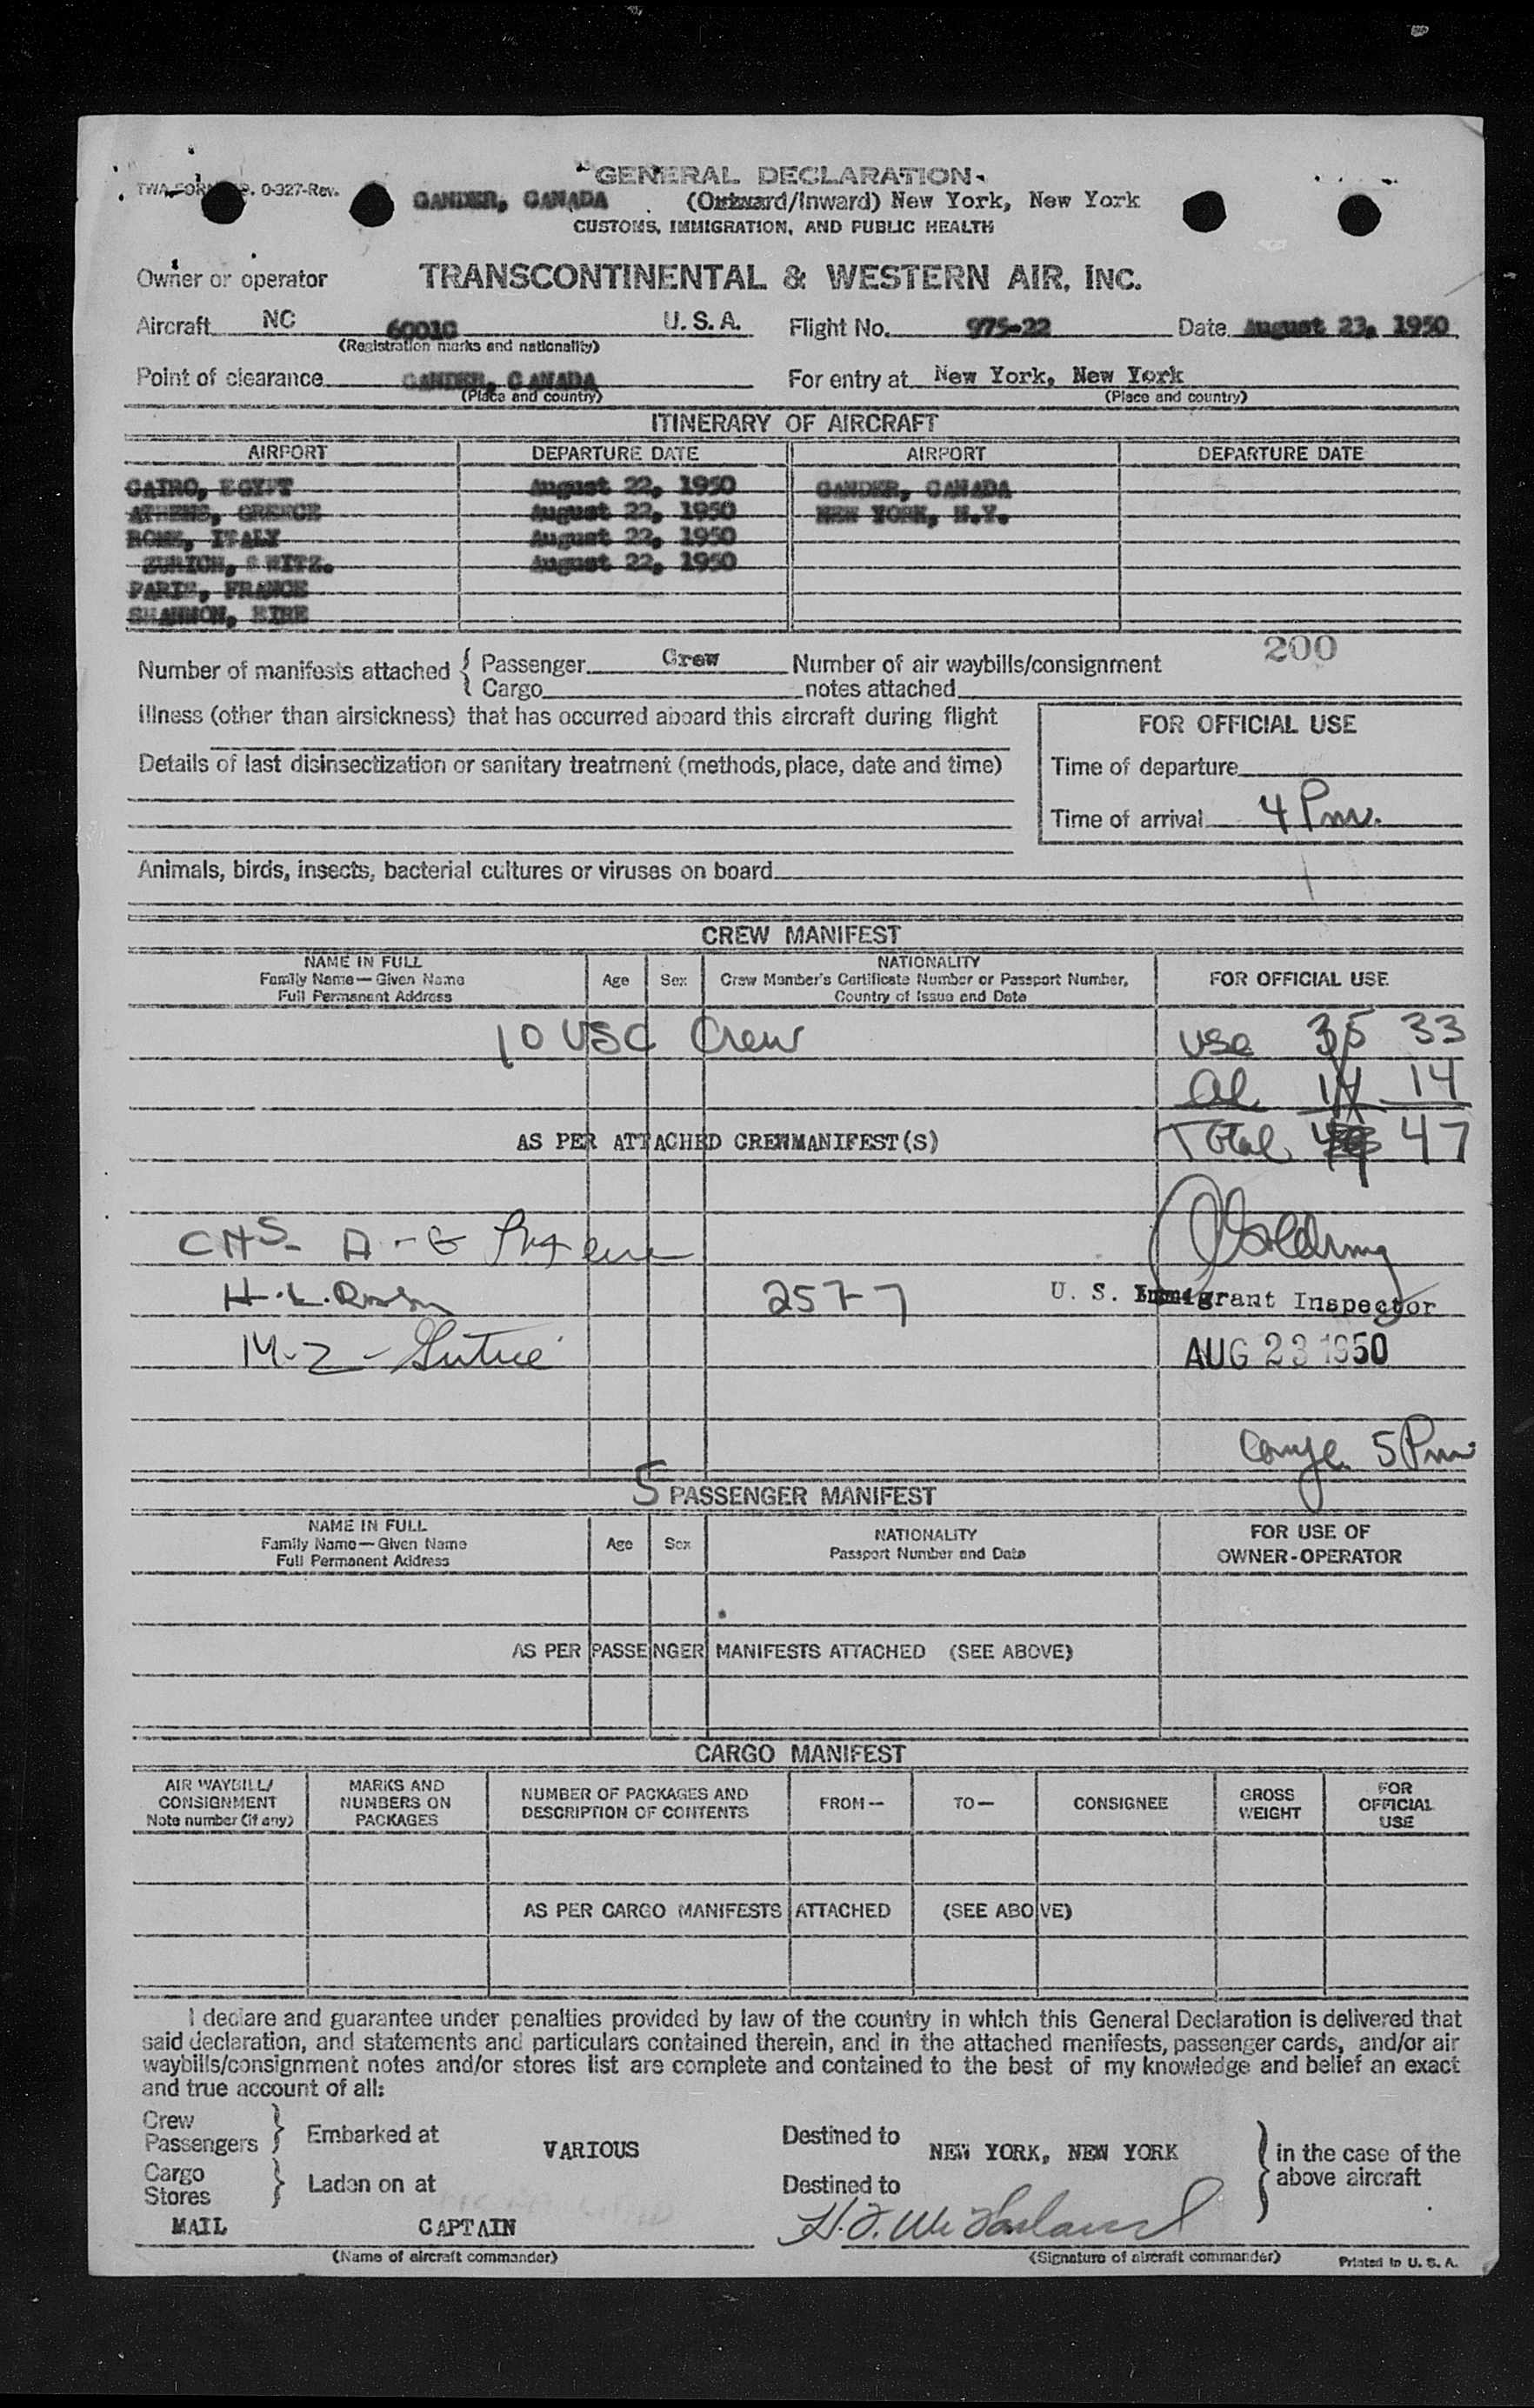 GENERAL DECLARATION
TWA FORM 0-327-Rev.
GANDER, CANADA (Outward/Inward) New York, New York
CUSTOMS, IMMIGRATION, AND PUBLIC HEALTH
Owner or operator TRANSCONTINENTAL & WESTERN AIR, INC.
Aircraft NC 6001C U.S.A. Flight No. 975-22 Date August 23, 1950
(Registration marks and nationality)
Point of clearance GANDER, CANADA For entry at New York, New York
(Place and country) (Place and country)
ITINERARY OF AIRCRAFT
AIRPORT DEPARTURE DATE AIRPORT DEPARTURE DATE
CAIRO, EGYPT August 22, 1950 GANDER, CANADA
ATHENS, GREECE August 22, 1950 NEW YORK, N.Y.
ROME, ITALY August 22, 1950
ZURICH, SWITZ. August 22, 1950
PARIS, FRANCE
SHANNON, EIRE
200
Number of manifests attached { Passenger Crew Number of air waybills/consignment
Cargo notes attached
Illness (other than airsickness) that has occurred aboard this aircraft during flight
FOR OFFICIAL USE
Details of last disinsectization or sanitary treatment (methods, place, date and time)
Time of departure
Time of arrival 4 Pm.
Animals, birds, insects, bacterial cultures or viruses on board
CREW MANIFEST
NAME IN FULL
Family Name—Given Name
Full Permanent Address
Age
Sex
NATIONALITY
Crew Member's Certificate Number or Passport Number,
Country of Issue and Date
FOR OFFICIAL USE
10 USC Crew
usc 35 33
al 14 14
Total 47
AS PER ATTACHED CREWMANIFEST(S)
CHS- A-G
H.L.
2577
U. S. Immigrant Inspector
M-Z -
AUG 23 1950
5 Pm
5
PASSENGER MANIFEST
NAME IN FULL
Family Name—Given Name
Full Permanent Address
Age
Sex
NATIONALITY
Passport Number and Date
FOR USE OF
OWNER-OPERATOR
AS PER PASSENGER MANIFESTS ATTACHED (SEE ABOVE)
CARGO MANIFEST
AIR WAYBILL/
CONSIGNMENT
Note number (if any)
MARKS AND
NUMBERS ON
PACKAGES
NUMBER OF PACKAGES AND
DESCRIPTION OF CONTENTS
FROM—
TO—
CONSIGNEE
GROSS
WEIGHT
FOR
OFFICIAL
USE
AS PER CARGO MANIFESTS ATTACHED (SEE ABOVE)
I declare and guarantee under penalties provided by law of the country in which this General Declaration is delivered that
said declaration, and statements and particulars contained therein, and in the attached manifests, passenger cards, and/or air
waybills/consignment notes and/or stores list are complete and contained to the best of my knowledge and belief an exact
and true account of all:
Crew
Passengers } Embarked at VARIOUS Destined to NEW YORK, NEW YORK } in the case of the
above aircraft
Cargo
Stores } Laden on at Destined to
MAIL CAPTAIN H.F.
(Name of aircraft commander) (Signature of aircraft commander) Printed in U. S. A.